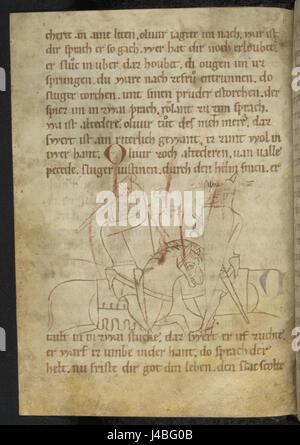 cherte in anit siten, oliuir iagete im nach, war ist
dir sprach er so gach. wer hat dir noch erloubet.
er sluc in uber daz houbet. di ougen im uz
sprungen. du ware nach entrunnen. do
sluger torchen. unt sinen pruder estorchen. der
spiez im in zwai prach. rolant zu zim sprach.
wa ist alteclere. oliuir tut des mich mere. daz
swert ist ain riterlich gewant. iz zimt wol in
iwer hant. Oliuir zoch alteclerē. uan ualle
pecede. sluger iustinen. durch den helm sinen. er
tailt in in zwai stucke. daz swert er uf zuchte.
er warf iz umbe in der hant. do sprach der
helt. nu friste dir got din leben. den slac scolte
alamy
www.alamy.com
J4BG0B